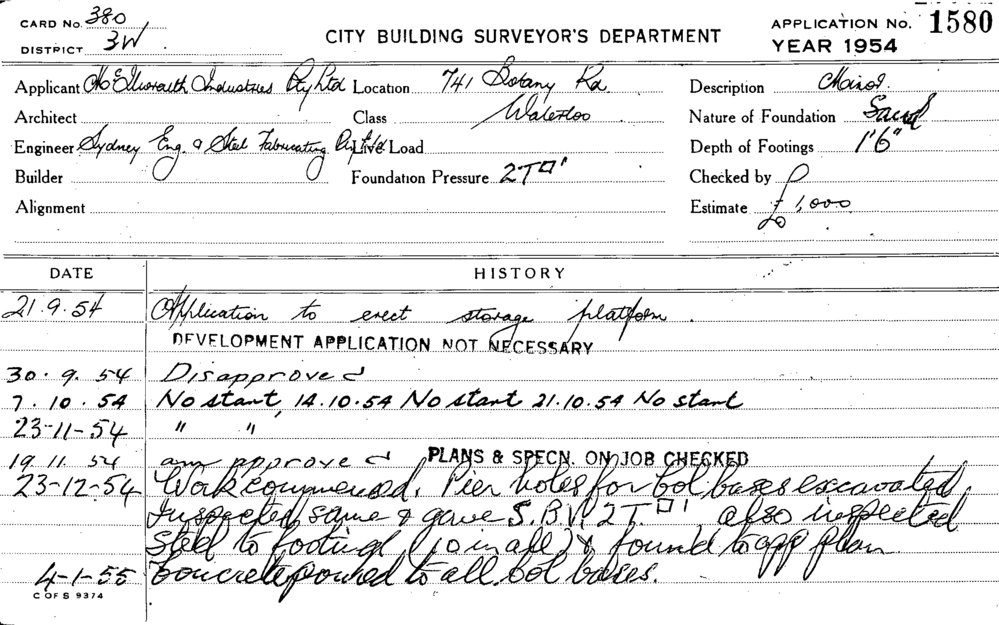 CARD No. 380
DISTRICT 3W
CITY BUILDING SURVEYOR'S DEPARTMENT
APPLICATION No. 1580
YEAR 1954
Applicant McIlwraith Industries Pty Ltd Location 741 Botany Rd. Description Minor.
Architect Class Waterloo Nature of Foundation Sand
Engineer Sydney Eng. & Steel Fabricating Pty Ltd Live Load Depth of Footings 1'6"
Builder Foundation Pressure 2T□' Checked by
Alignment Estimate £1,000
DATE HISTORY
21.9.54 Application to erect storage platform.
DEVELOPMENT APPLICATION NOT NECESSARY
30.9.54 Disapproved
7.10.54 No start 14.10.54 No start 21.10.54 No start
23-11-54 " "
19.11.54 am approved PLANS & SPECN. ON JOB CHECKED
23-12-54 Work commenced. Pier holes for Col bases excavated.
Inspected same & gave S.B.V. 2T.□' also inspected
Steel to footings (10 in all) & found to app plan.
4-1-55 Concrete poured to all Col bases.
C OF S 9374